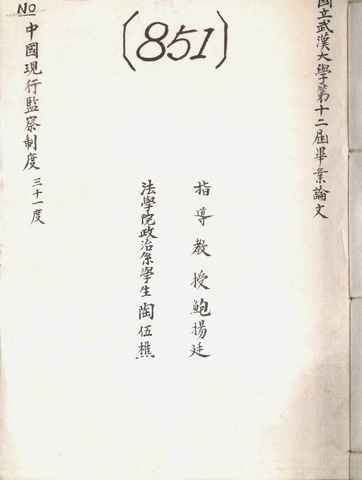 國立武漢大學第十二屆畢業論文
(851)
指導教授鮑揚廷
法學院政治系學生陶伍樵
NO
中國現行監察制度 三十一度